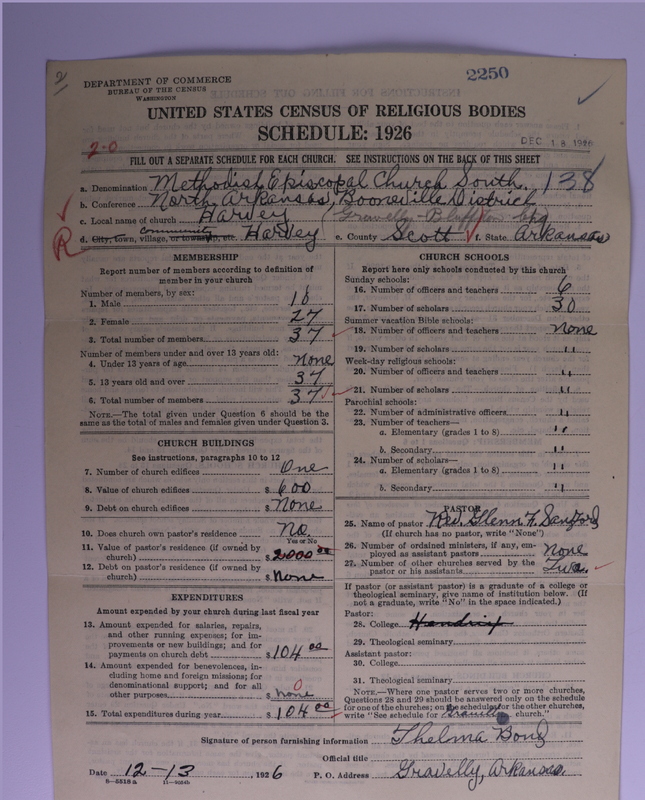 2
2250
DEPARTMENT OF COMMERCE
BUREAU OF THE CENSUS
WASHINGTON
UNITED STATES CENSUS OF RELIGIOUS BODIES
SCHEDULE: 1926
DEC 18 1926
2-0
FILL OUT A SEPARATE SCHEDULE FOR EACH CHURCH. SEE INSTRUCTIONS ON THE BACK OF THIS SHEET
a. Denomination Methodist Episcopal Church South. 138
b. Conference North Arkansas, Booneville District
c. Local name of church Harvey (Gravelly-Bluffton chg
R d. City, town, village, or township, etc. community Harvey e. County Scott f. State Arkansas
MEMBERSHIP
Report number of members according to definition of
member in your church
Number of members, by sex:
1. Male 10
2. Female 27
3. Total number of members 37
Number of members under and over 13 years old:
4. Under 13 years of age None
5. 13 years old and over 37
6. Total number of members 37
NOTE.—The total given under Question 6 should be the
same as the total of males and females given under Question 3.
CHURCH BUILDINGS
See instructions, paragraphs 10 to 12
7. Number of church edifices One
8. Value of church edifices $ 600
9. Debt on church edifices $ None
10. Does church own pastor's residence No.
Yes or No
11. Value of pastor's residence (if owned by
church) $ 2000 00
12. Debt on pastor's residence (if owned by
church) $ None
EXPENDITURES
Amount expended by your church during last fiscal year
13. Amount expended for salaries, repairs,
and other running expenses; for im-
provements or new buildings; and for
payments on church debt $ 104 00
14. Amount expended for benevolences, in-
cluding home and foreign missions; for
denominational support; and for all
other purposes $ None 0
15. Total expenditures during year $ 104 00
CHURCH SCHOOLS
Report here only schools conducted by this church
Sunday schools:
16. Number of officers and teachers 6
17. Number of scholars 30
Summer vacation Bible schools:
18. Number of officers and teachers None
19. Number of scholars "
Week-day religious schools:
20. Number of officers and teachers "
21. Number of scholars "
Parochial schools:
22. Number of administrative officers "
23. Number of teachers—
a. Elementary (grades 1 to 8) "
b. Secondary "
24. Number of scholars—
a. Elementary (grades 1 to 8) "
b. Secondary "
PASTOR
25. Name of pastor Rev. Glenn F. Sanford
(If church has no pastor, write "None")
26. Number of ordained ministers, if any, em-
ployed as assistant pastors None
27. Number of other churches served by the
pastor or his assistants
If pastor (or assistant pastor) is a graduate of a college or
theological seminary, give name of institution below. (If
not a graduate, write "No" in the space indicated.)
Pastor:
28. College Hendrix
29. Theological seminary
Assistant pastor:
30. College
31. Theological seminary
NOTE.—Where one pastor serves two or more churches,
Questions 28 and 29 should be answered only on the schedule
for one of the churches; on the schedules for the other churches,
write "See schedule for church."
Signature of person furnishing information Thelma Bond
Official title
Date 12-13, 1926 P. O. Address Gravelly, Arkansas.
8-5518 a